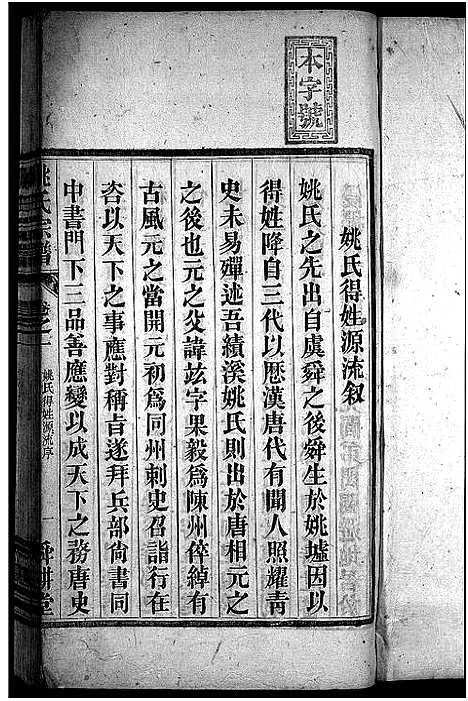 本字號
姚氏得姓源流叙
姚氏之先出自虞舜之後舜生於姚墟因以
得姓降自三代以歷漢唐代有聞人照耀青
史未易殫述吾績溪姚氏則出於唐相元之
之後也元之父諱玆字果毅爲陳州倅綽有
古風元之當開元初爲同州刺史召詣行在
咨以天下之事應對稱旨遂拜兵部尙書同
中書門下三品善應變以成天下之務唐史
姚氏宗譜
卷之一
姚氏得姓源流序
一
舜耕堂